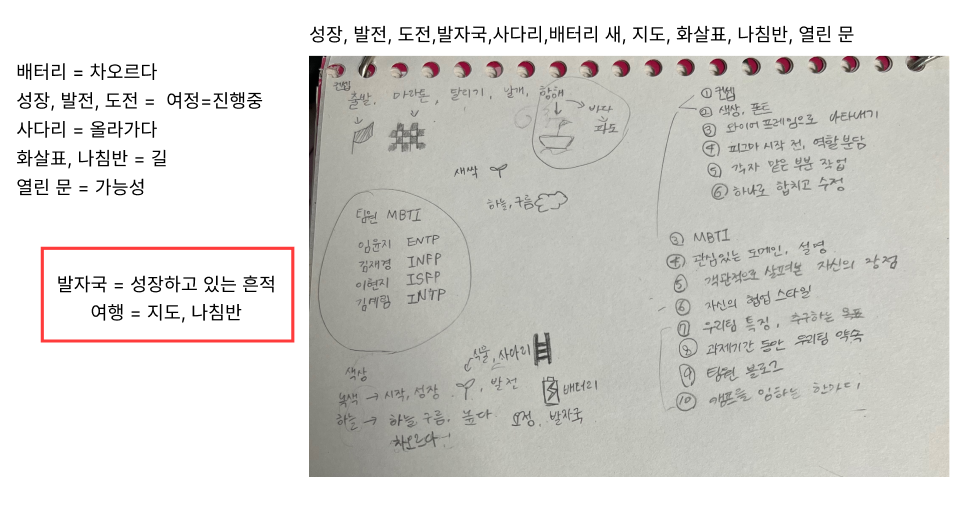 성장, 발전, 도전,발자국,사다리,배터리 새, 지도, 화살표, 나침반, 열린 문
배터리 = 차오르다
성장, 발전, 도전 =  여정=진행중
사다리 = 올라가다
화살표, 나침반 = 길
열린 문 = 가능성
발자국 = 성장하고 있는 흔적
여행 = 지도, 나침반
컨셉
출발, 마라톤, 달리기, 날개, 항해
바다
파도
새싹
하늘, 구름
팀원 MBTI
임윤지 ENTP
김재경 INFP
이현지 ISFP
식물, 사다리
색상
녹색 → 시작, 성장, 발전
배터리
하늘 → 하늘, 구름, 높다. 요정, 발자국
차오르다
① 컨셉
② 색상, 폰트
③ 와이어 프레임으로 나타내기
④ 피그마 시작 전, 역할 분담
⑤ 각자 맡은 부분 작업
⑥ 하나로 합치고 수정
③ MBTI
④ 관심있는 도메인, 설명
⑤ 객관적으로 살펴본 자신의 장점
⑥ 자신의 협업 스타일
⑦ 우리팀 특징, 추구하는 목표
⑧ 과제기간 동안 우리팀 약속
⑨ 팀원 블로그
⑩ 캠프를 임하는 한마디